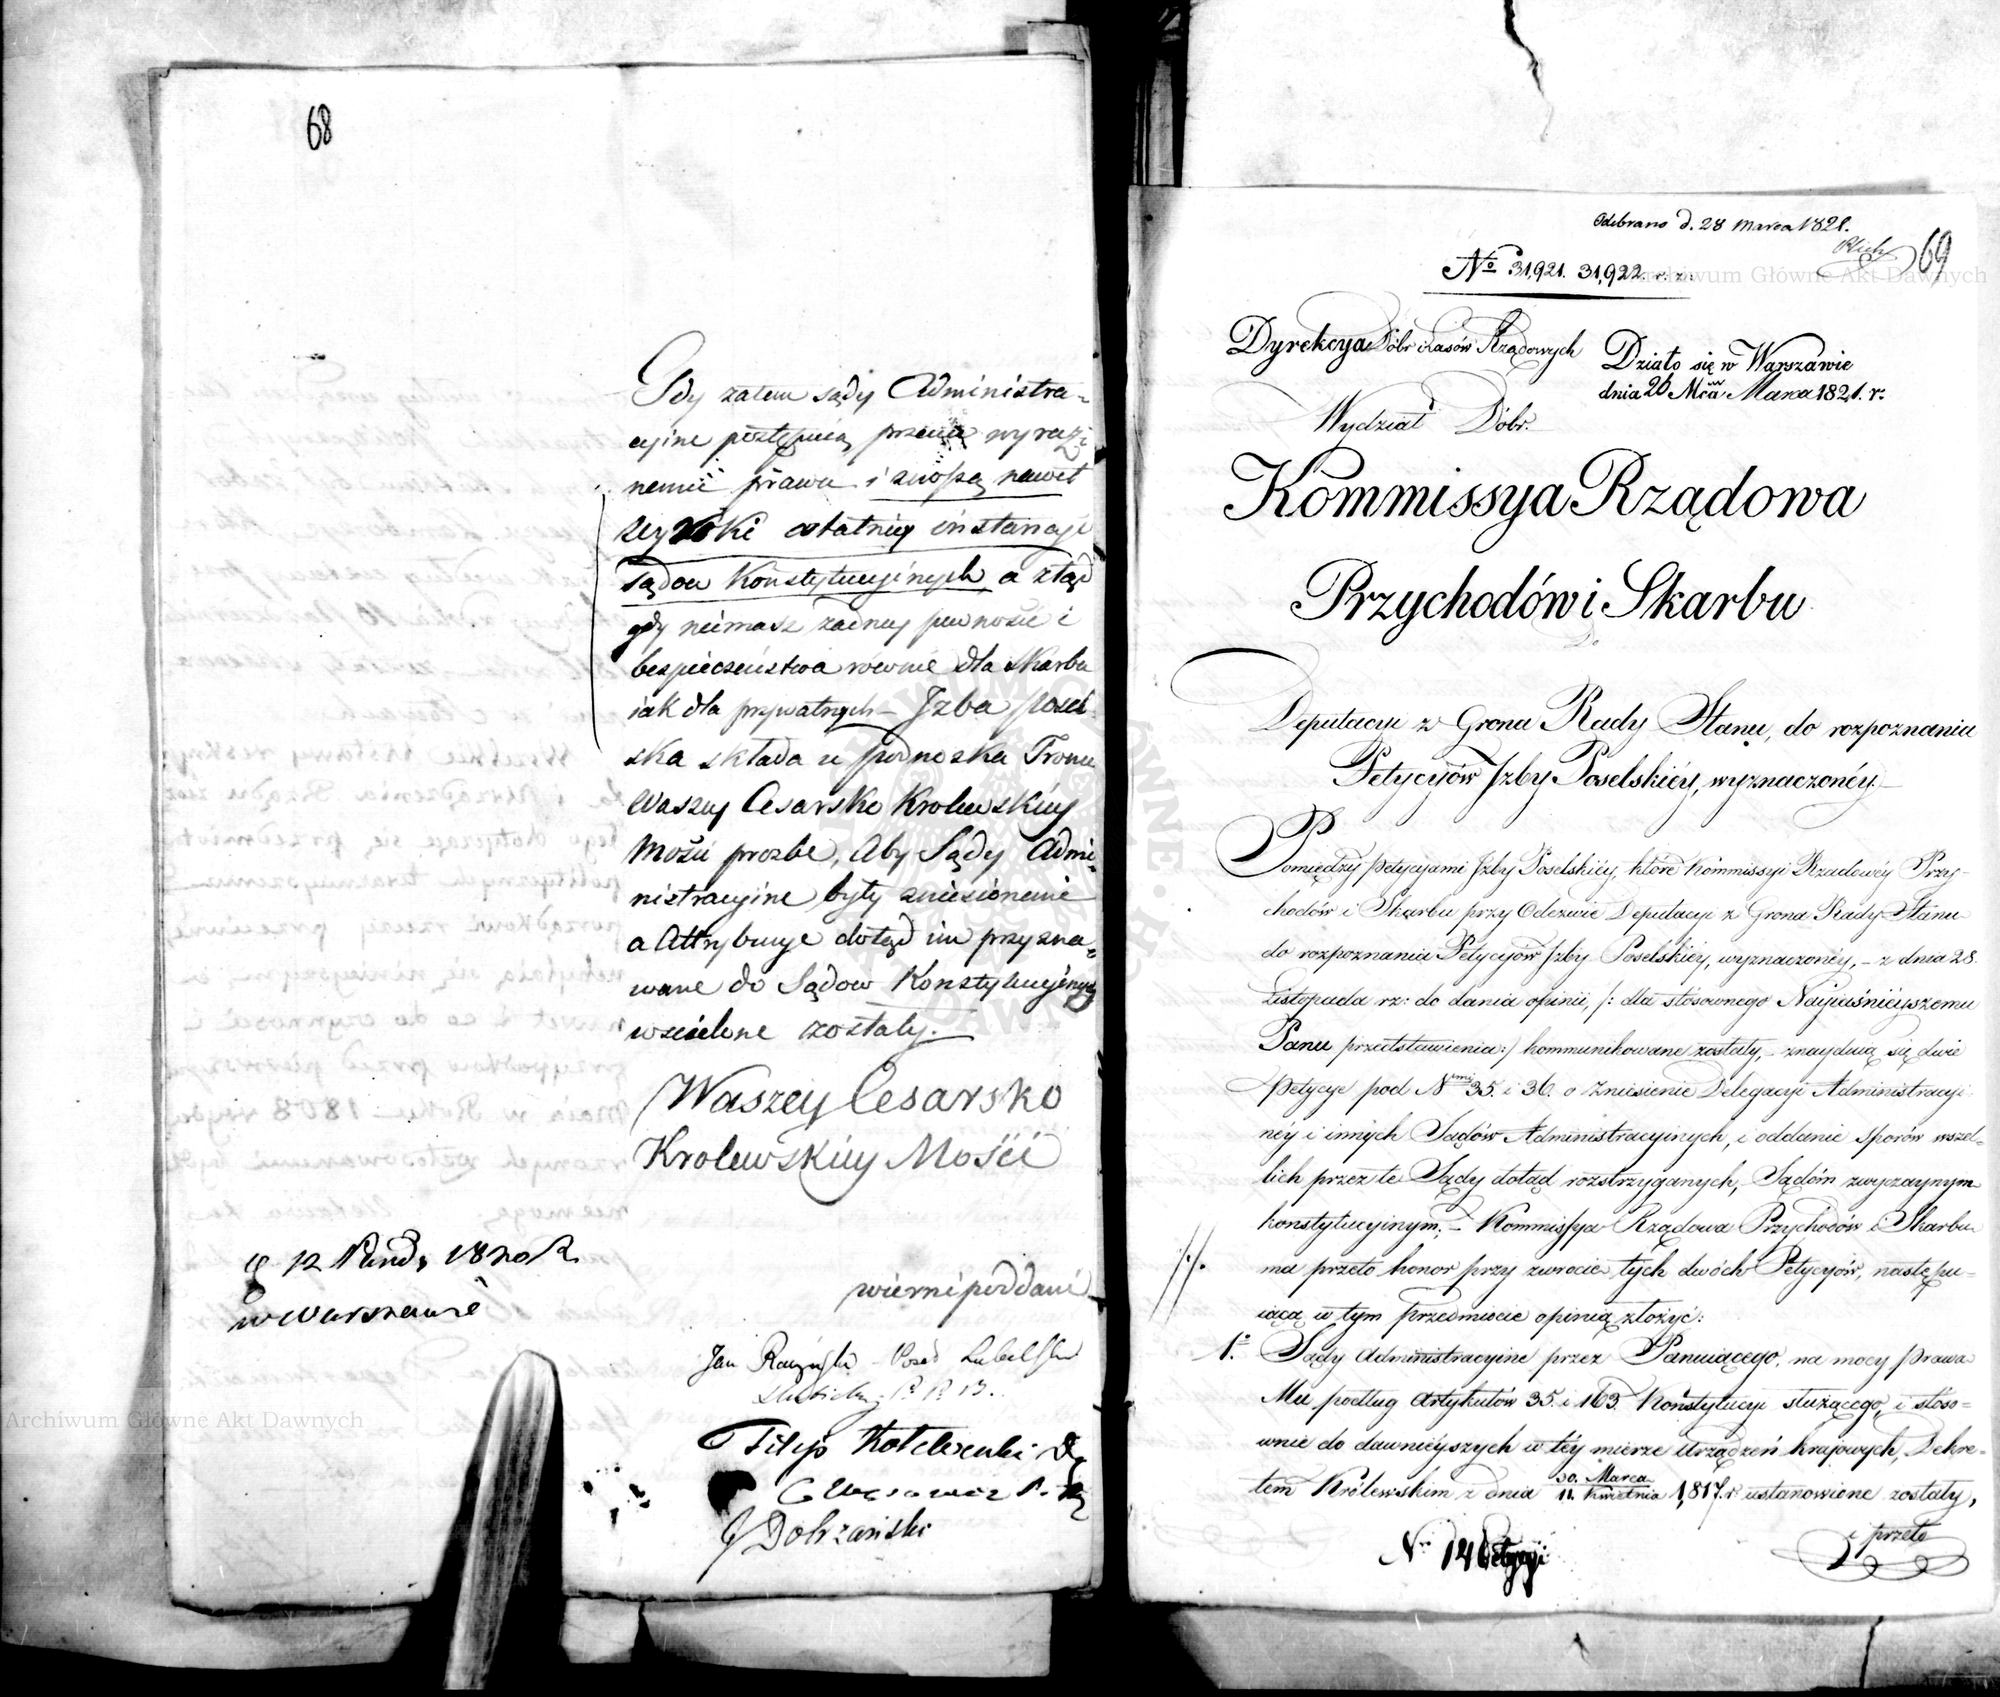 68
Gdy zatem sądy Administra-
cyine postępuią przeciw wyraź-
nemu prawu i znoszą nawet
wyroki ostatniey instancyi
sądów Konstytucyinych, a ztąd
gdy niemasz żadney pewności i
bespieczeństwa równie dla skarbu
iak dla prywatnych – Izba Posel-
ska składa u podnoska Tronu
Waszey Cesarsko Krolewskiey
Mości prozbę, Aby Sądy Admi-
nistracyine były zniesionemi
a Attrybucye dotąd im przyzna-
wane do Sądow Konstytucyinych
wcielone zostały.
Waszey Cesarsko
Krolewskiey Mości
12 1820 R
w Warszawie
wierni poddani
Jan Poseł Lubelski
Filip
J Dobrzański
Odebrano d. 28 Marca 1821.
69
No 31,921. 31,922. r. z.
Dyrekcya Dóbr i Lasów Rządowych
Działo się w Warszawie
dnia 26 Mca Marca 1821. r.
Wydział Dóbr.
Kommissya Rządowa
Przychodów i Skarbu
Do
Deputacyi z Grona Rady Stanu, do rozpoznania
Petycyiów Izby Poselskiéy, wyznaczonéy.
Pomiędzy petycyiami Izby Poselskiéy, które Kommissyi Rządowéy Przy-
chodów i Skarbu przy Odezwie Deputacyi z Grona Rady Stanu
do rozpoznania Petycyiów Izby Poselskiéy, wyznaczonéy, – z dnia 28.
Listopada rz: do dania opinii, /: dla stósownego Nayiaśnieyszemu
Panu przedstawienia :/ kommunikowane zostały, – znayduią się dwie
petycye pod Nrmi 35. i 36. o zniesienie Delegacyi Administracyi-
néy i innych Sądów Administracyinych, i oddanie sporów wszel-
lich przez te Sądy dotąd rozstrzyganych, Sądóm zwyczaynym
konstytucyinym; – Kommissya Rządowa Przychodów i Skarbu
ma przeto honor przy zwrocie tych dwóch Petycyiów, następu-
iącą w tym przedmiocie opinią złożyć:
1o. Sądy Administracyine przez Panuiącego, na mocy prawa
Mu podług Artykułów 35. i 163. Konstytucyi służącego, i stóso-
wnie do dawnieyszych w téy mierze Urządzeń kraiowych, Dekre-
tem Królewskim z dnia 30. Marca / 11. Kwietnia 1,817. r. ustanowione zostały,
i przeto
Nr 146 Petycyi
Archiwum Główne Akt Dawnych
Archiwum Główne Akt Dawnych